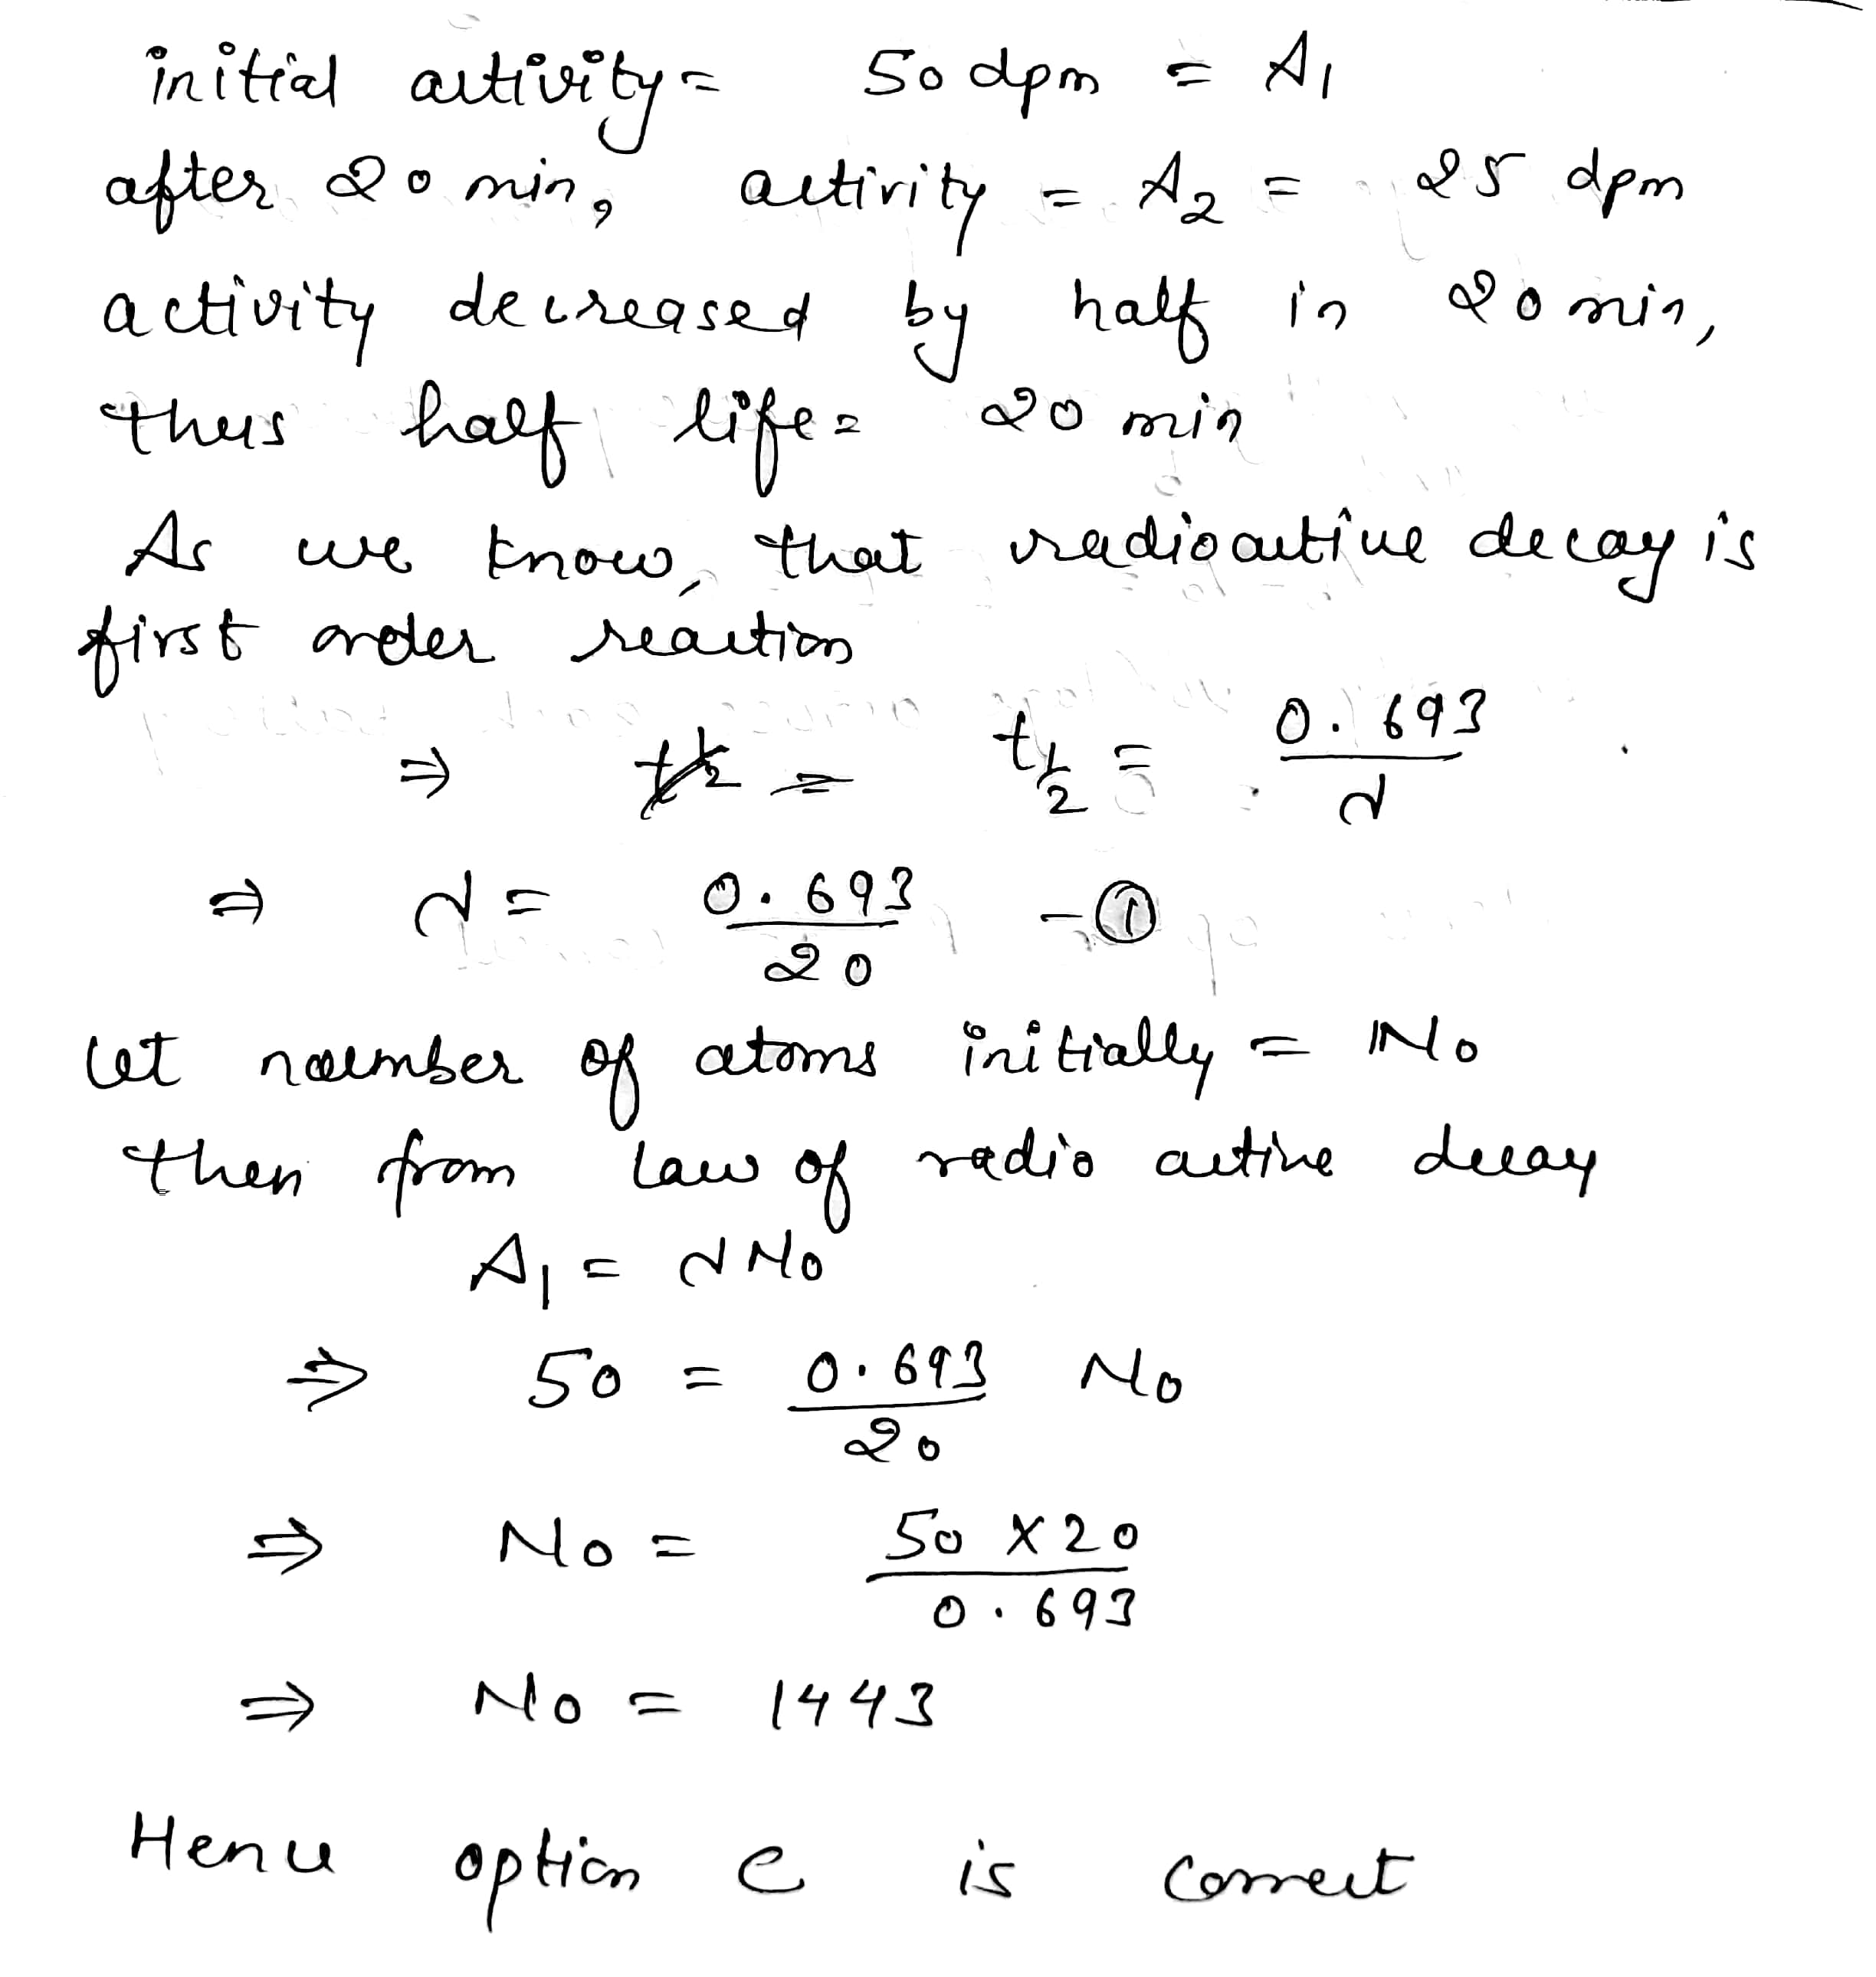 initial activity = 50 dpm = A₁
after 20 min, activity = A₂ = 25 dpm
activity decreased by half in 20 min,
thus half life = 20 min
As we know, that radioactive decay is
first order reaction
⇒ t½ = t½ = 0.693/λ
⇒ λ = 0.693/20 - ①
let number of atoms initially = N₀
then from law of radio active decay
A₁ = λN₀
⇒ 50 = 0.693/20 N₀
⇒ N₀ = 50 × 20/0.693
⇒ N₀ = 1443
Hence option C is correct